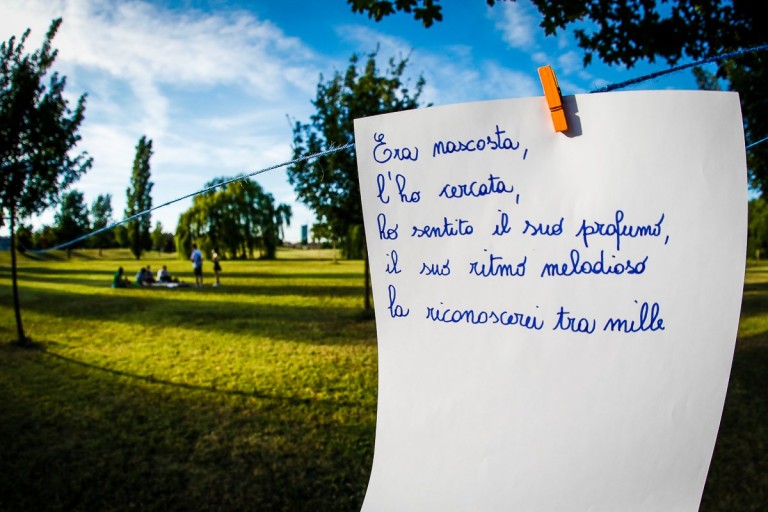 Era nascosta,
l'ho cercata,
ho sentito il suo profumo,
il suo ritmo melodioso
la riconoscerei tra mille